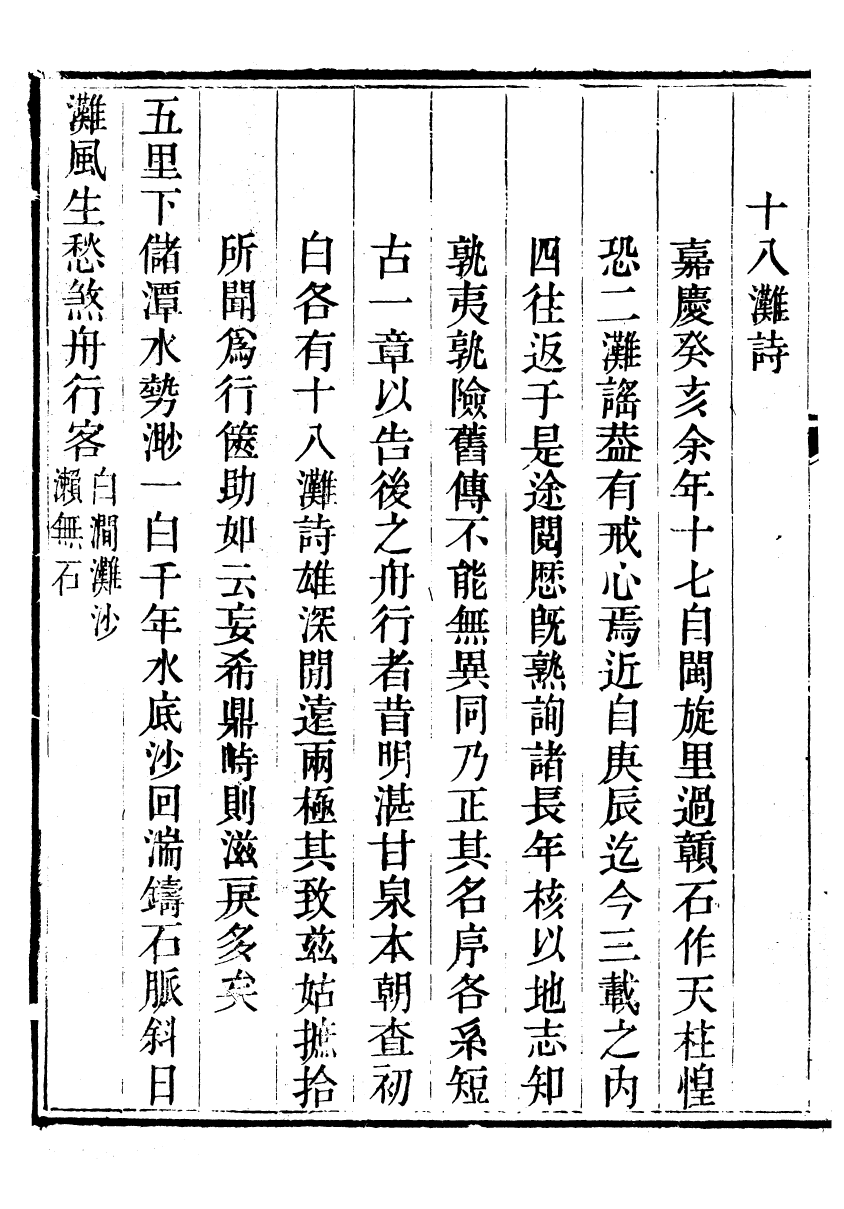 十八灘詩
嘉慶癸亥余年十七自閩旋里過贛石作天柱惶
恐二灘謠葢有戒心焉近自庚辰迄今三載之內
四往返于是途閱歷旣熟詢諸長年核以地志知
孰夷孰險舊傳不能無異同乃正其名序各系短
古一章以告後之舟行者昔明湛甘泉本朝查初
白各有十八灘詩雄深閒遠兩極其致茲姑摭拾
所聞爲行篋助如云妄希鼎峙則滋戾多矣
五里下儲潭水勢渺一白千年水底沙回湍鑄石脈斜日
灘風生愁煞舟行客
白澗灘沙
瀨無石